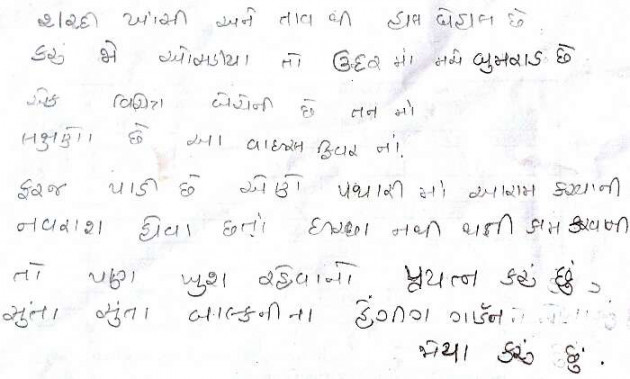 શરદી ખાંસી અને તાવ થી હાલ બેહાલ છે.
કરું જો ઓસડીયા તો ઉદર માં મચે બુમરાડ છે
એક વિચિત્ર બેચેની છે તન માં
લક્ષણો છે આ વાઇરલ ફિવર નાં.
ફરજ પાડી છે એણે પથારી માં આરામ કરવાની
નવરાશ હોવા છતાં ઇચ્છા નથી થતી કામ કરવાની
તો પણ ખુશ રહેવાનો પ્રયત્ન કરું છું,
સુંતા સુંતા બાલ્કનીના હેંગીગ ગાર્ડન
જોયા કરું છું.